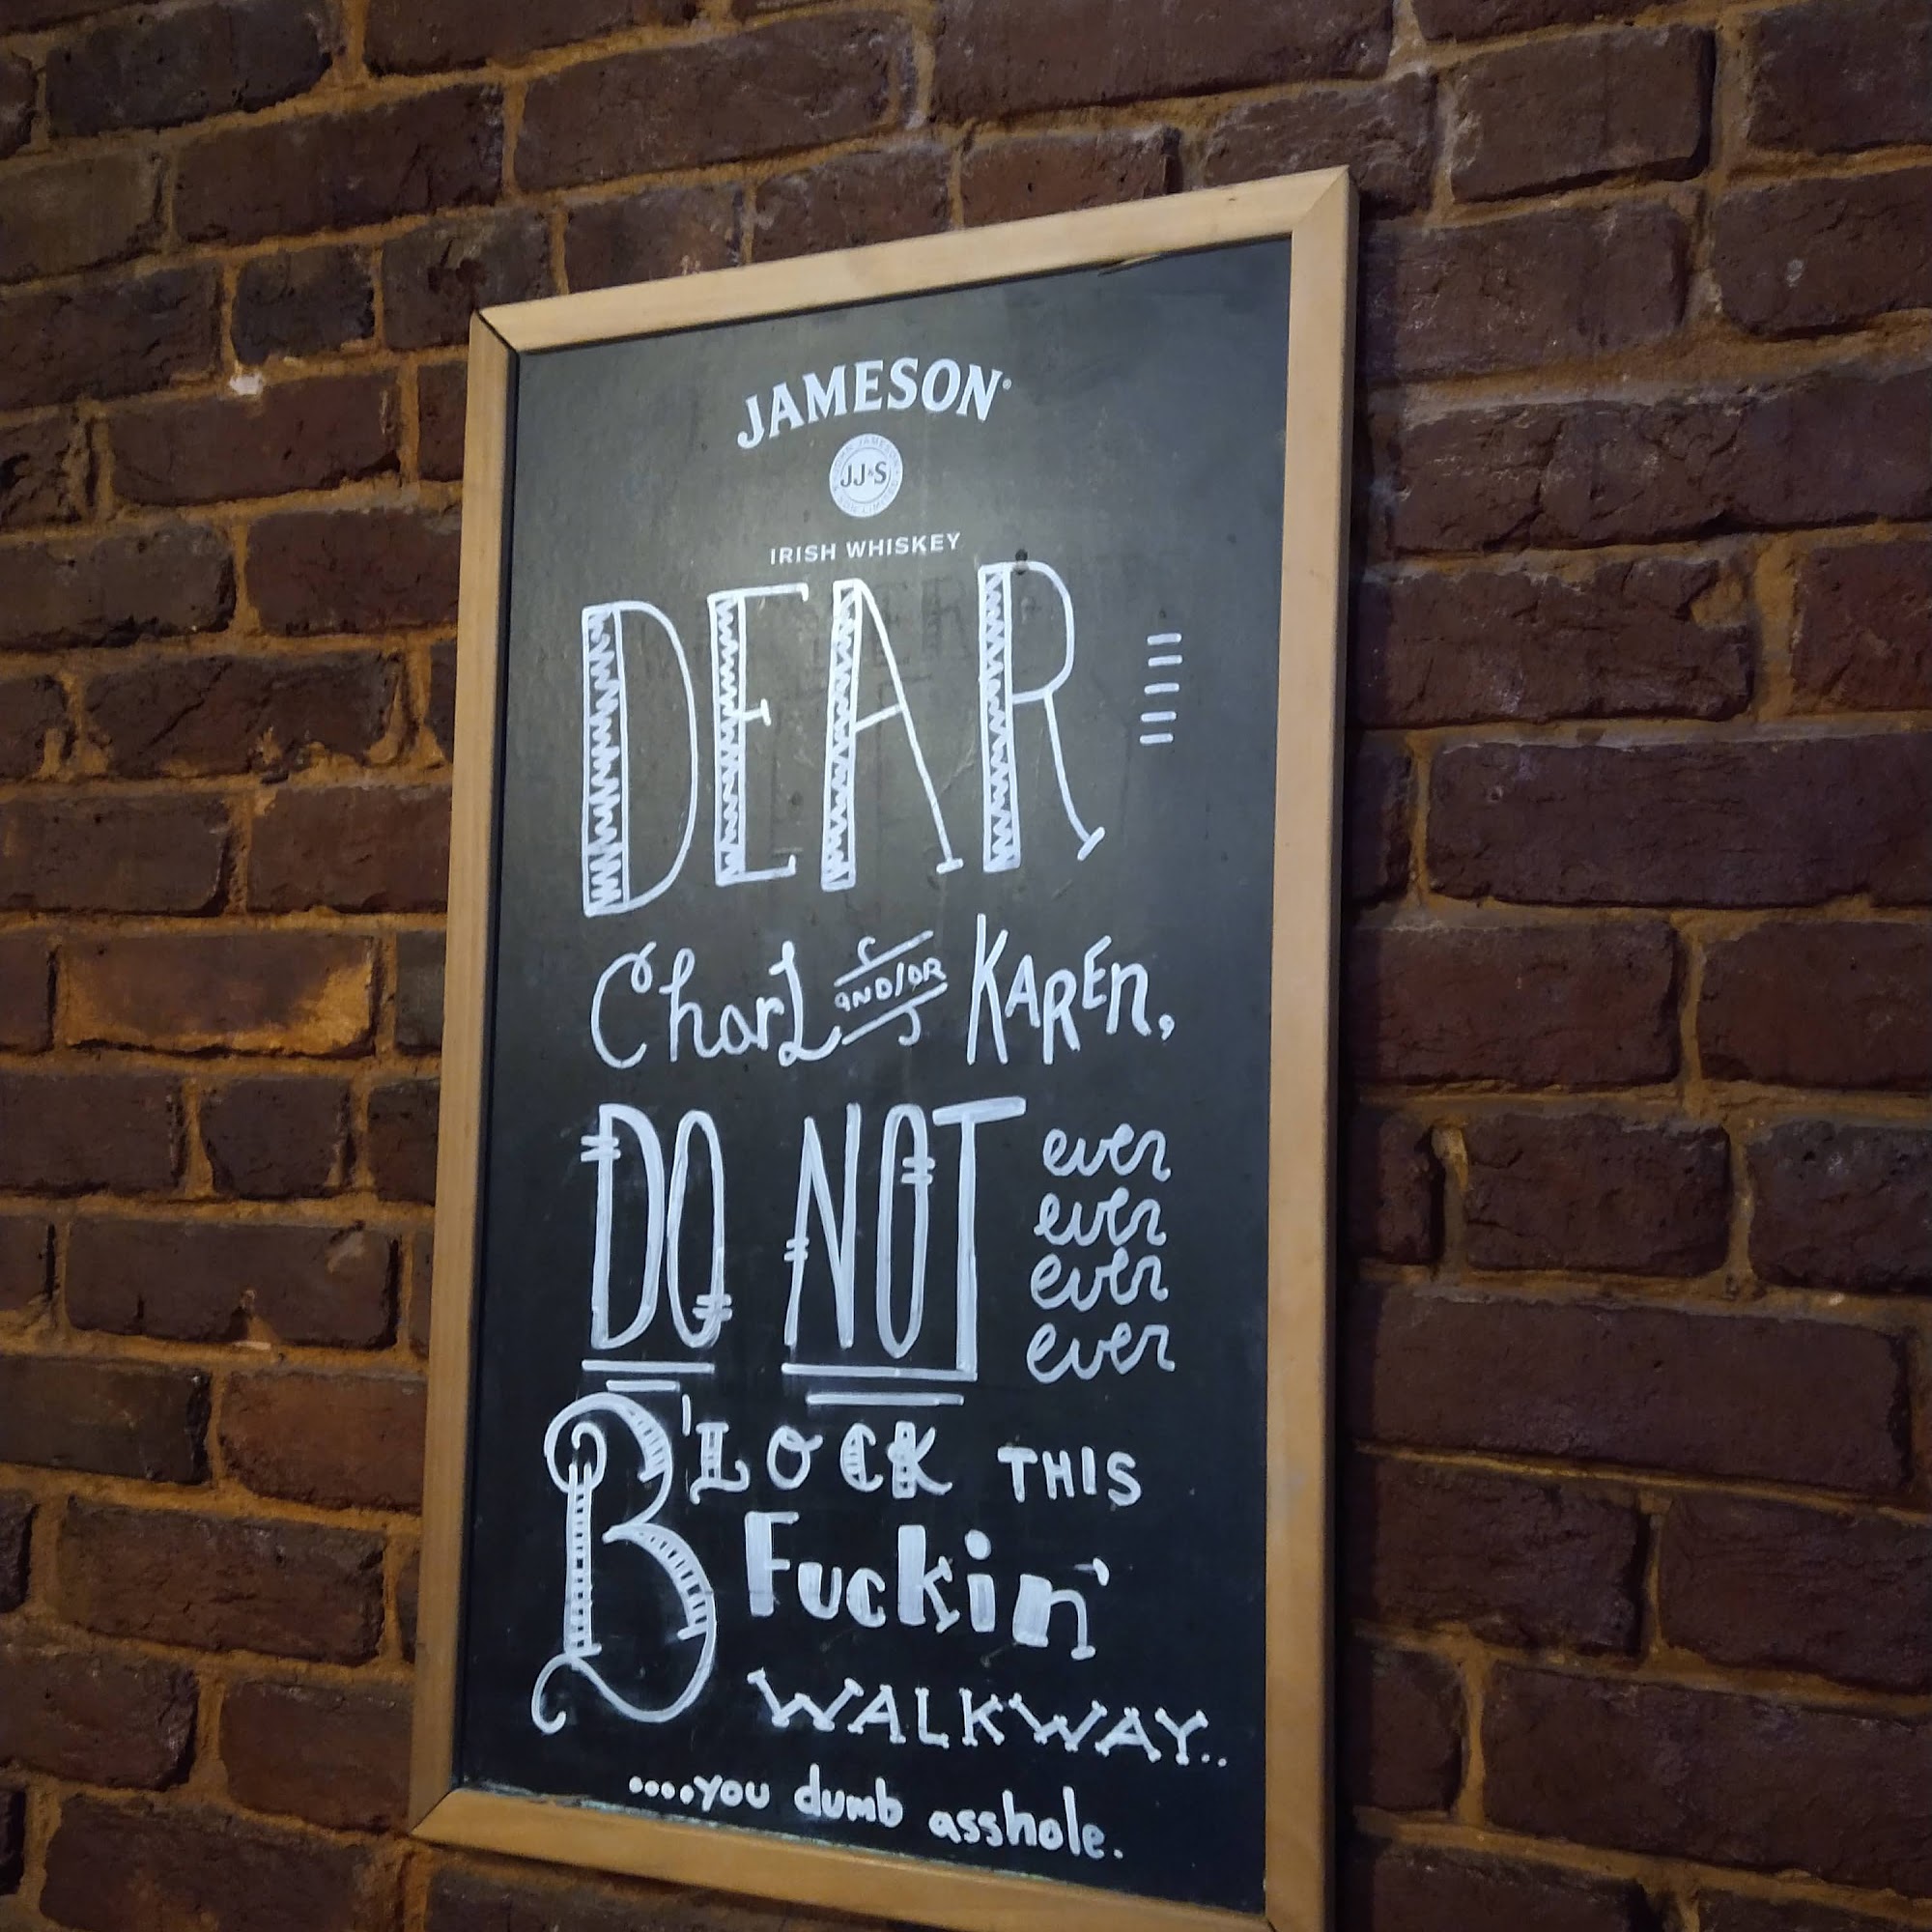 JAMESON®
JJ&S
IRISH WHISKEY
DEAR
Charl AND/OR KAREN,
DO NOT ever
ever
ever
ever
B'LOCK THIS
Fuckin'
WALKWAY..
....you dumb asshole.